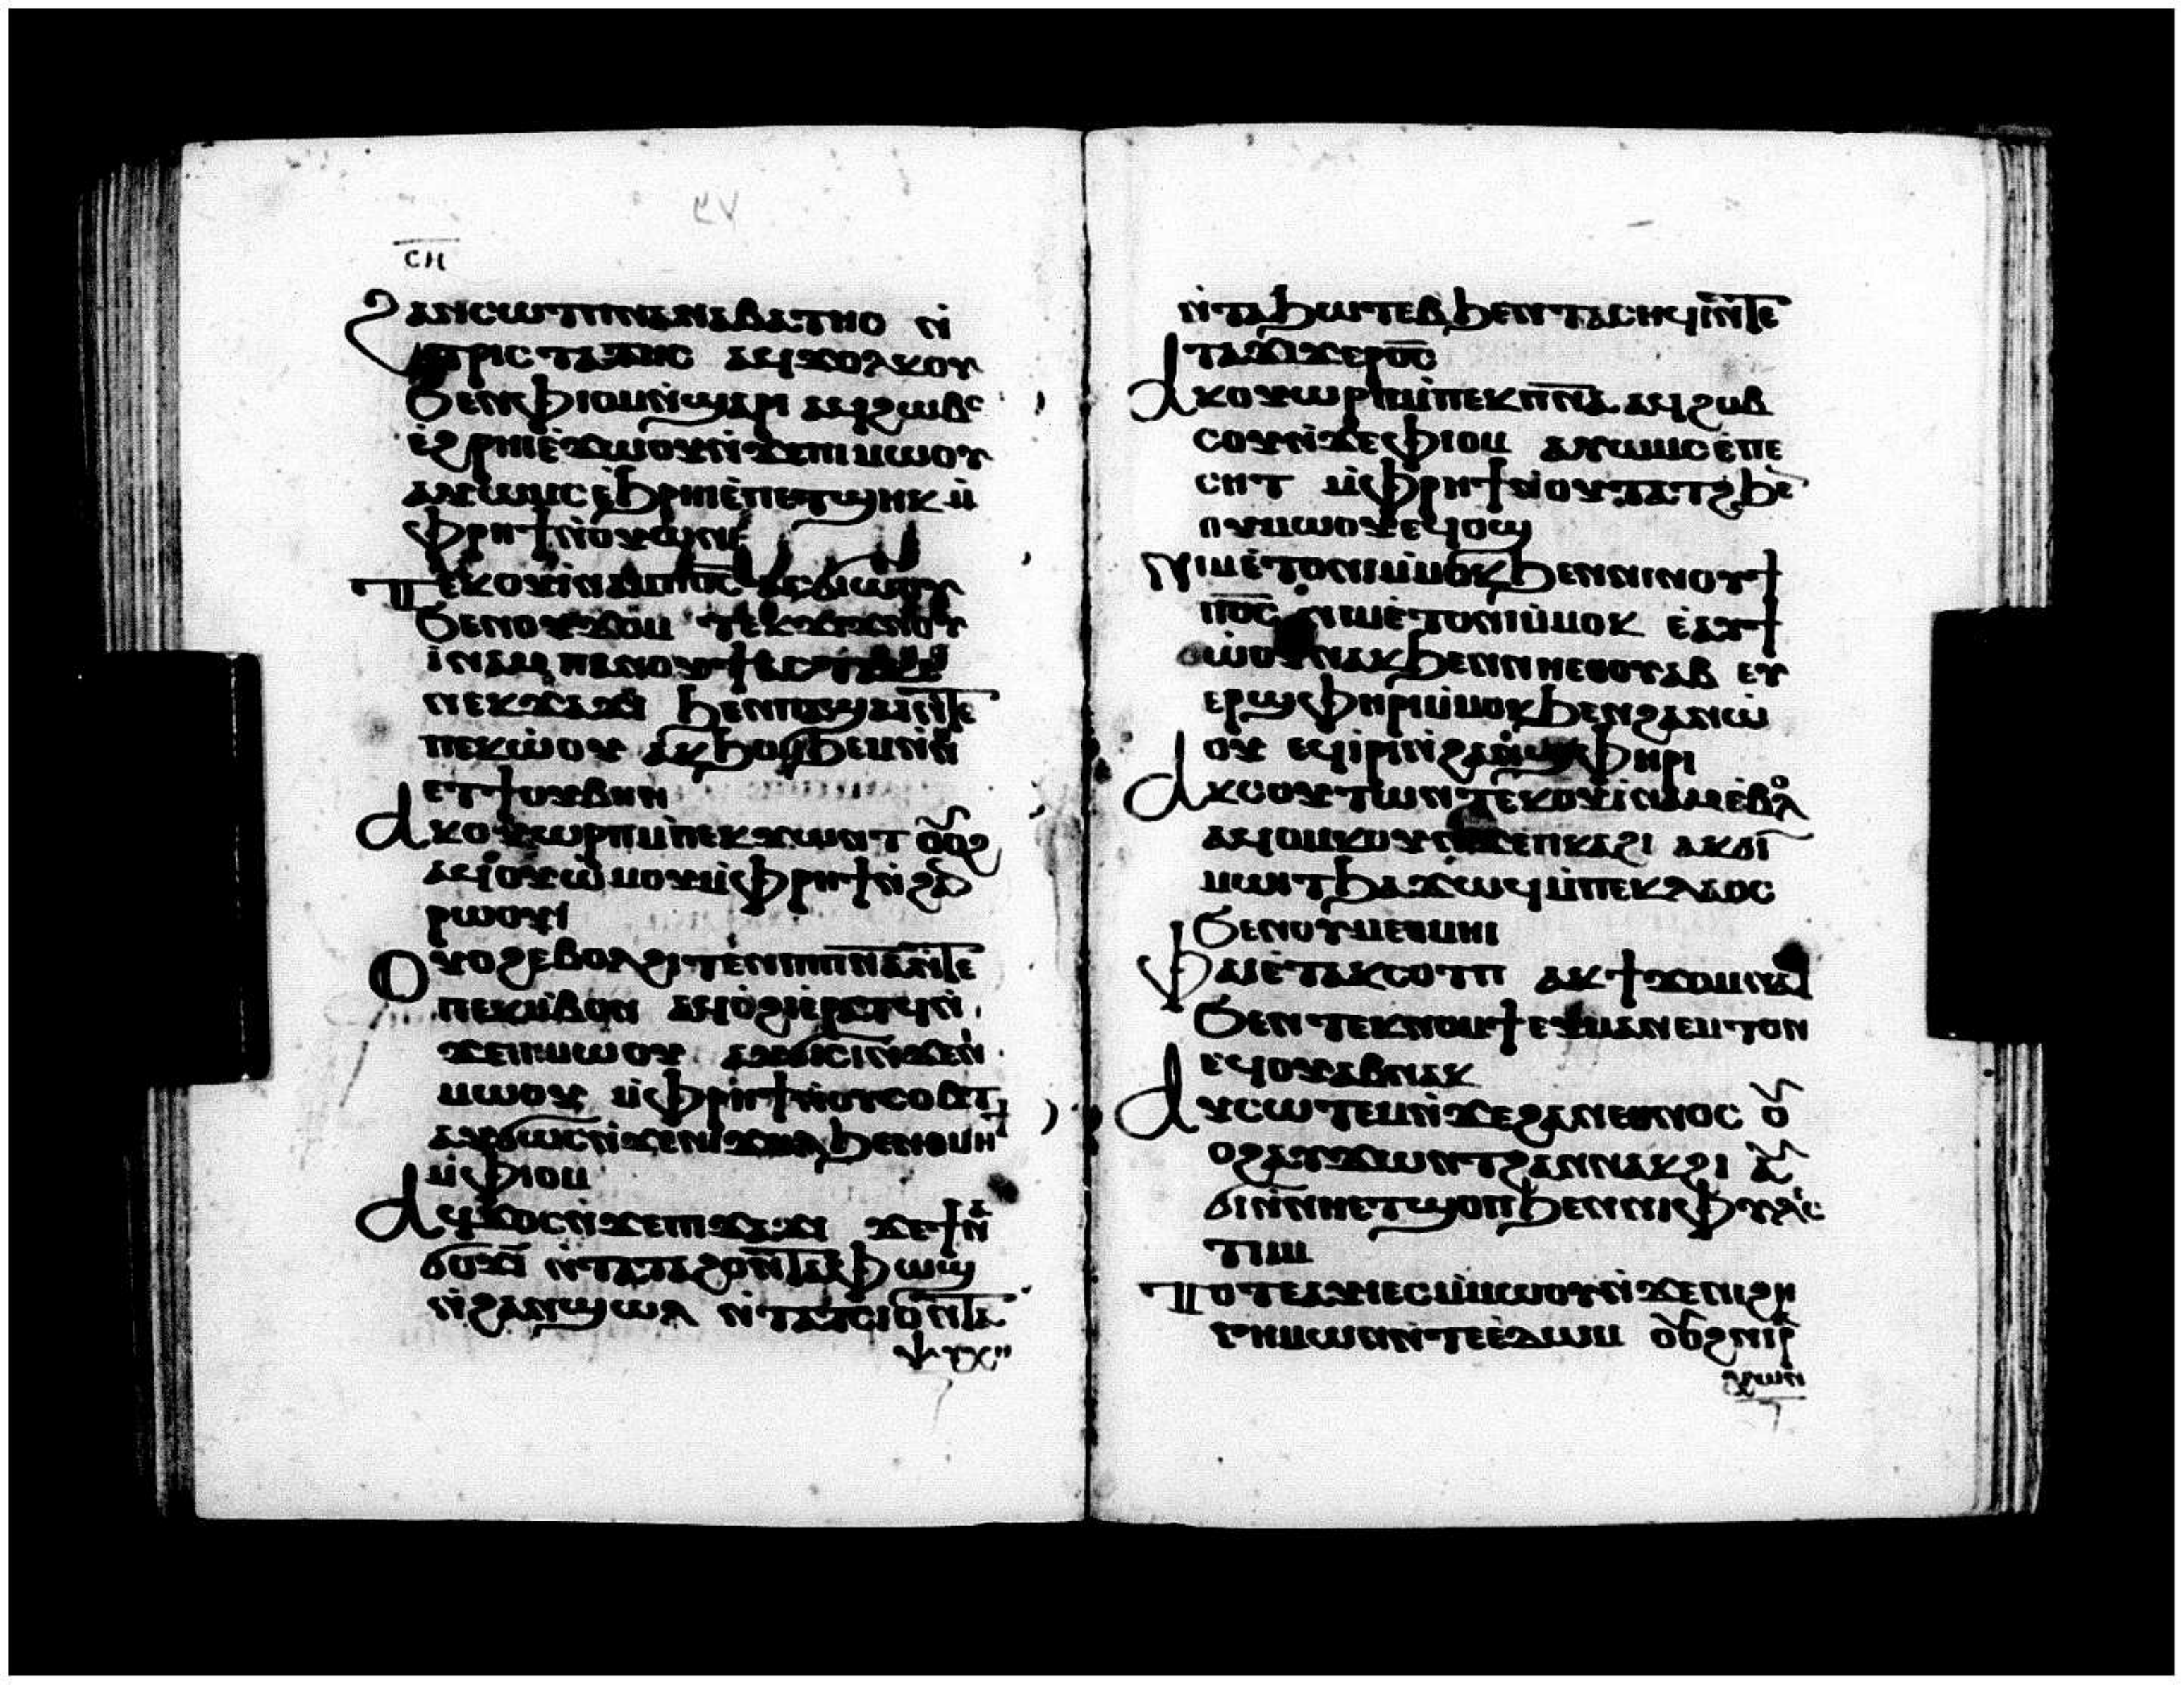 ⲥⲏ
ϩⲁⲛⲥⲱⲧⲡⲛⲁⲛⲁⲃⲁⲧⲏⲟ ⲛ̇
ⲧⲣⲓⲥⲧⲁⲧⲏⲥ ⲁϥϫⲟⲗⲕⲟⲩ
ϧⲉⲛⲫⲓⲟⲙⲛ̇ϣⲁⲣⲓ ⲁϥϩⲱⲃⲥ
ⲉ̇ϩⲣⲏⲓⲉ̇ϫⲱⲟⲩⲛ̇ϫⲉⲡⲓⲙⲱⲟⲩ
ⲁⲩⲱⲙⲥⲉ̇ϧⲣⲏⲓⲉ̇ⲡⲉⲧϣⲏⲕ ⲙ̇
ⲫⲣⲏϯⲛ̇ⲟⲩⲱ̇ⲛⲓ
ⲧⲉⲕⲟⲩⲓ̇ⲛⲁⲙⲡⲟ̅ⲥ̅ ⲁⲥϭⲓⲱⲟⲩ
ϧⲉⲛⲟⲩϫⲟⲙ ⲧⲉⲕϫⲓϫⲛ̇ⲟⲩ
ⲓ̇ⲛⲁⲙ ⲡⲁⲛⲟⲩϯ ⲁⲥⲧⲁⲕⲉ
ⲛⲉⲕϫⲁϫⲓ ϧⲉⲛⲡⲁϣⲁⲓⲛ̅ⲧⲉ
ⲡⲉⲕⲱ̇ⲟⲩ ⲁⲕϧⲟⲙϧⲉⲙⲛ̇ⲛⲏ
ⲉⲧϯⲟⲩⲃⲏⲛ
ⲁⲕⲟⲩⲱⲣⲡⲙ̇ⲡⲉⲕϫⲱⲛⲧ ⲟⲩⲟϩ
ⲁϥⲟⲩⲱ̇ⲙⲟⲩⲙ̇ⲫⲣⲏϯⲛ̇ϩⲁ
ⲣⲱⲟⲩⲓ̇
ⲟⲩⲟϩⲉⲃⲟⲗϩⲓⲧⲉⲛⲡⲓⲡⲛ̅ⲁ̅ⲛ̅ⲧⲉ
ⲡⲉⲕⲙ̇ⲃⲟⲛ ⲁϥⲟ̇ϩⲓⲉ̇ⲣⲁⲧϥⲛ̇
ϫⲉⲡⲓⲙⲱⲟⲩ ⲁⲩϭⲓⲥⲓⲛ̇ϫⲉⲛⲓ
ⲙⲱⲟⲩ ⲙ̇ⲫⲣⲏϯⲛ̇ⲟⲩⲥⲟⲃⲧ
ⲁⲩϭⲱⲥⲛ̇ϫⲉⲛⲓϫⲟⲗ ϧⲉⲛⲑⲙⲏϯ
ⲙ̇ⲫⲓⲟⲙ
ⲁϥϫⲟⲥⲛ̇ϫⲉⲡⲓϫⲁϫⲓ ϫⲉϯⲛⲁ
ϭⲟϫⲓ ⲛ̇ⲧⲁⲧⲁϩⲟⲛ̅ⲧⲁⲫⲱϣ
ⲛ̇ϩⲁⲛϣⲱⲗ ⲛ̇ⲧⲁⲧⲥⲓⲟⲛ̅ⲧⲁ
ⲯⲩⲭⲏ
ⲛ̇ⲧⲁϧⲱⲧⲉⲃϧⲉⲛⲧⲁⲥⲏϥⲓⲛ̅ⲧⲉ
ⲧⲁϫⲓϫⲉⲣⲟ̅ⲥ̅
ⲁⲕⲟⲩⲱⲣⲡⲙ̇ⲡⲉⲕⲡ̅ⲛ̅ⲁ̅ ⲁϥϩⲱⲃ
ⲥⲟⲩⲛ̇ϫⲉⲫⲓⲟⲙ ⲁⲩⲱⲙⲥⲉ̇ⲡⲉ
ⲥⲏⲧ ⲙ̇ⲫⲣⲏϯⲛ̇ⲟⲩⲧⲁⲧϩϧⲉ
ⲛⲟⲩⲙⲱⲟⲩⲉϥⲟϣ
ⲛⲓⲙⲉ̇ⲧⲟⲛⲓⲙ̇ⲙⲟⲕϧⲉⲛⲛⲓⲛⲟⲩϯ
ⲡⲟ̅ⲥ̅ ⲛⲓⲙⲉ̇ⲧⲟⲛⲓⲙ̇ⲙⲟⲕ ⲉ̇ⲁⲩϯ
ⲱ̇ⲟⲩⲛⲁⲕϧⲉⲛⲛⲏⲉⲑⲟⲩⲁⲃ ⲉⲩ
ⲉⲣϣⲫⲏⲣⲓⲙ̇ⲙⲟⲕϧⲉⲛϩⲁⲛⲱ̇
ⲟⲩ ⲉϥⲓⲣⲓⲛ̇ϩⲁⲛϣⲫⲏⲣⲓ
ⲁⲕⲥⲟⲩⲧⲱⲛⲧⲉⲕⲟⲩⲓ̇ⲛⲁⲙⲉ̇ⲃⲟⲗ
ⲁϥⲟⲙⲕⲟⲩⲛ̇ϫⲉⲡⲕⲁϩⲓ ⲁⲕϭⲓ
ⲙⲱⲓⲧϧⲁϫⲱϥⲙ̇ⲡⲉⲕⲗⲁⲟⲥ
ϧⲉⲛⲟⲩⲙⲉⲑⲙⲏⲓ
ⲫⲁⲓⲉ̇ⲧⲁⲕⲥⲟⲧⲡ ⲁⲕϯϫⲟⲙⲛⲁϥ
ϧⲉⲛⲧⲉⲕⲛⲟⲙϯ ⲉⲩⲙⲁⲛⲉⲙⲧⲟⲛ
ⲉϥⲟⲩⲁⲃⲛⲁⲕ
ⲁⲩⲥⲱⲧⲉⲙⲛ̇ϫⲉϩⲁⲛⲉⲑⲛⲟⲥ ⲟⲩ
ⲟϩⲁⲩϫⲱⲛⲧϩⲁⲛⲛⲁⲕϩⲓ ⲁⲩ
ϭⲓⲛ̇ⲛⲏⲉⲧϣⲟⲡϧⲉⲛⲛⲓⲫⲩⲗⲓⲥ
ⲧⲓⲙ
ⲧⲟⲧⲉⲁⲩⲓⲏⲥⲙ̇ⲙⲱⲟⲩⲛ̇ϫⲉⲛⲓϩⲏ
ⲅⲏⲙⲱⲛⲛ̇ⲧⲉⲉ̇ⲇⲱⲙ ⲟⲩⲟϩⲛⲓⲁⲣ
ⲭⲱⲛ